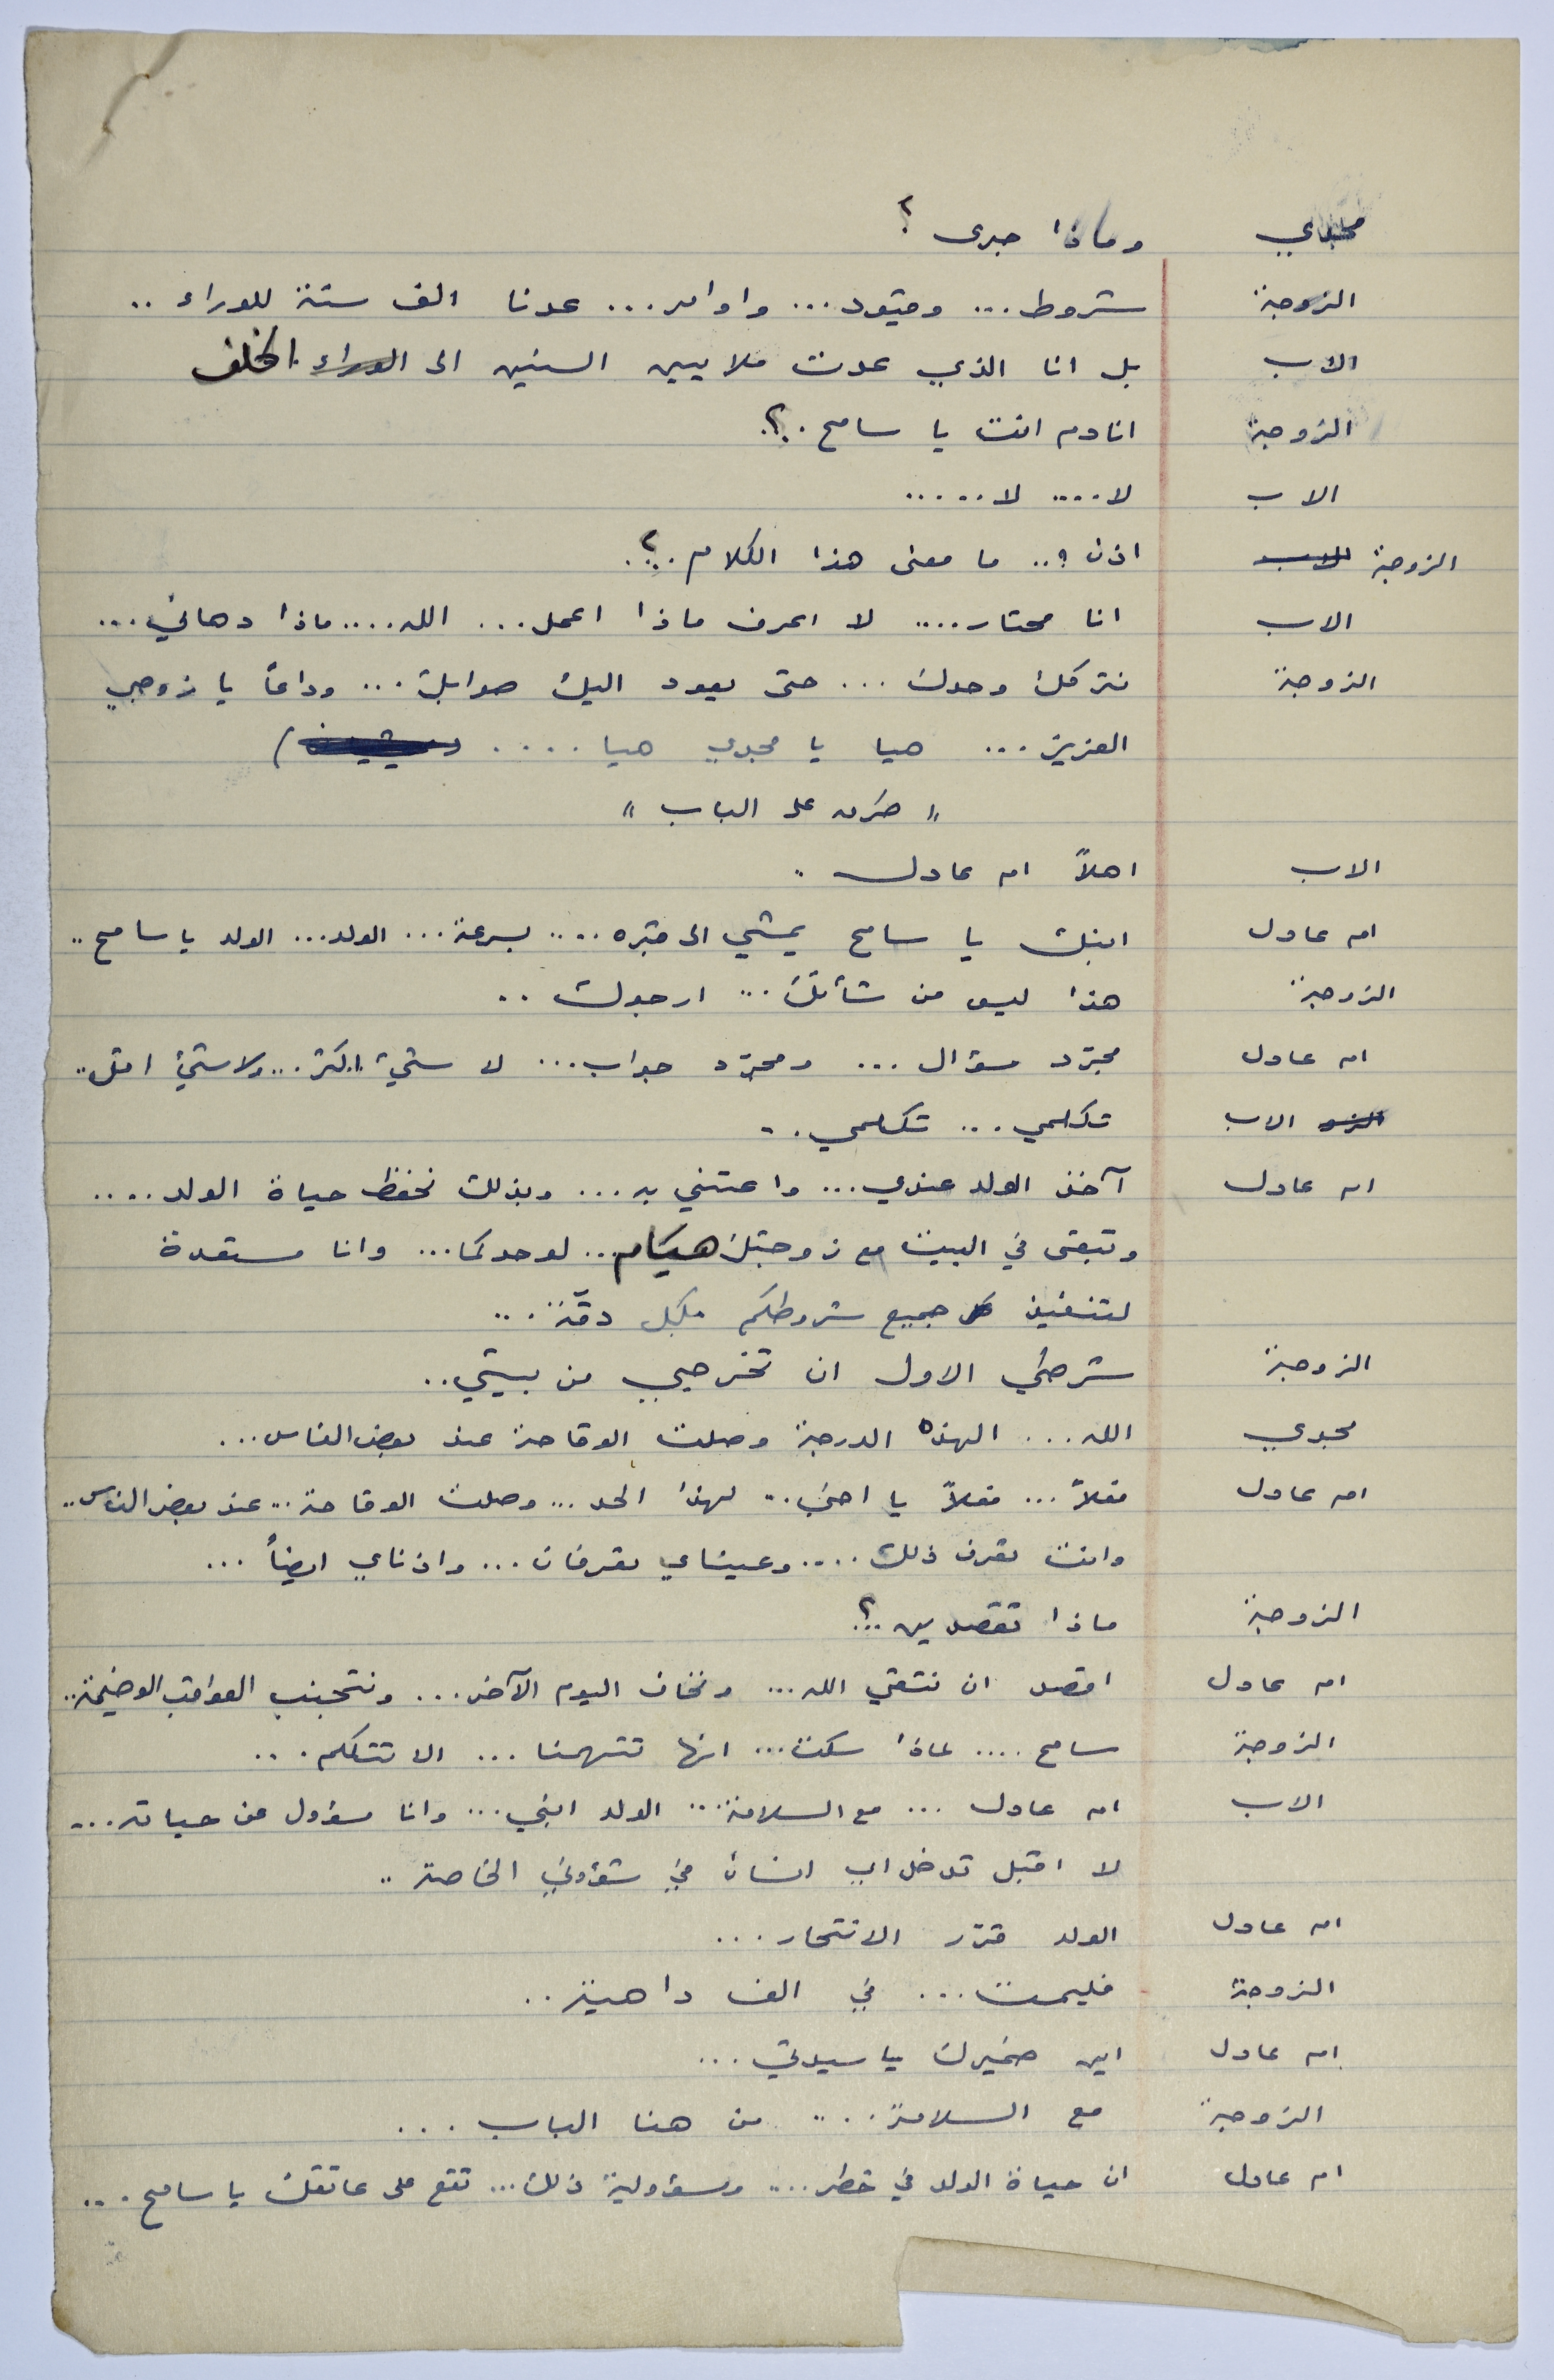 مجدي وماذا جرى ؟
الزوجة شروط ... وقيود ... واوامر ... عدنا الف سنة للوراء ..
الاب بل انا الذي عدت ملايين السنين الى الوراء الخلف
الزوجة انادم انت يا سامح .؟.
الاب لا .... لا .....
الزوجة الاب اذن ؟ .. ما معنى هذا الكلام .؟.
الاب انا محتار .... لا اعرف ماذا اعمل ... الله .... ماذا دهاني ...
الزوجة نتركك وحدك ... حتى يعود اليك صوابك ... وداعاً يا زوجي
العزيز ... هيا يا مجدي هيا ....
" طرق على الباب "
الاب اهلاً ام عادل .
ام عادل ابنك يا سامح يمشي الى قبره .... بسرعة ... الولد ... الولد يا سامح ..
الزوجة هذا ليس من شأنك ... ارجوك ..
ام عادل مجرّد سؤال ... ومجرّد جواب ... لا شيء اكثر ... ولا شيء اقل ..
الزو الاب تكلمي ... تكلمي ..
ام عادل آخذ الولد عندي ... واعتني به ... وبذلك نحفظ حياة الولد ....
وتبقى في البيت مع زوجتك هيام ... لوحدكما ... وانا مستعدة
لتنفيذ كل جميع شروطكم بكل دقّة ...
الزوجة شرطي الاول ان تخرجي من بيتي ..
مجدي الله ... الهذه الدرجة وصلت الوقاحة عند بعض الناس ...
ام عادل فعلاً ... فعلاً يا اخي .. لهذا الحد ... وصلت الوقاحة .. عند بعض الناس ..
وانت تعرف ذلك .... وعيناي تعرفان ... واذناي ايضاً ...
الزوجة ماذا تقصدين .؟.
ام عادل اقصد ان نتقي الله ... ونخاف اليوم الآخر ... ونتجنب العواقب الوخيمة ..
الزوجة سامح .... لماذا سكت ... انها تتهمنا ... الا تتكلم ...
الاب ام عادل ... مع السلامة ... الولد ابني ... وانا مسؤول عن حياته ...
لا اقبل تدخل اي انسان في شؤوني الخاصة ..
ام عادل الولد قرّر الانتحار ...
الزوجة فليمت ... في الف داهية ..
ام عادل اين ضميرك يا سيدتي ...
الزوجة مع السلامة ... من هنا الباب ...
ام عادل ان حياة الولد في خطر .... ومسؤولية ذلك ... تقع على عاتقك يا سامح ...